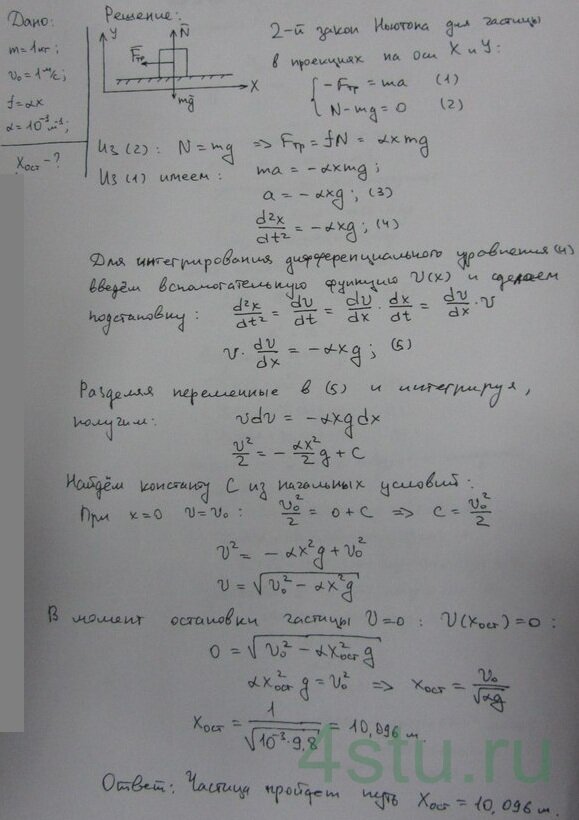 Дано:
m = 1 кг;
v₀ = 1 м/с;
f = αx
α = 10⁻³ м⁻¹;
Xост - ?
Решение:
Y
N̄
F̄тр
X
mḡ
2-й закон Ньютона для частицы
в проекциях на оси X и Y:
{ -Fтр = ma (1)
N - mg = 0 (2)
Из (2): N = mg => Fтр = fN = αxmg
Из (1) имеем: ma = -αxmg;
a = -αxg; (3)
d²x/dt² = -αxg; (4)
Для интегрирования дифференциального уравнения (4)
введём вспомогательную функцию V(x) и сделаем
подстановку: d²x/dt² = dv/dt = dv/dx · dx/dt = dv/dx · v
v · dv/dx = -αxg; (5)
Разделяя переменные в (5) и интегрируя,
получим: vdv = -αxgdx
v²/2 = -αx²/2 g + C
Найдём константу C из начальных условий:
При x=0 v=v₀: v₀²/2 = 0 + C => C = v₀²/2
v² = -αx²g + v₀²
v = √(v₀² - αx²g)
В момент остановки частицы V=0: V(xост)=0:
0 = √(v₀² - αx²ост g)
αx²ост g = v₀² => xост = v₀/√(αg)
Xост = 1/√(10⁻³·9,8) = 10,096 м.
4stu.ru
Ответ: Частица пройдет путь Xост = 10,096 м.